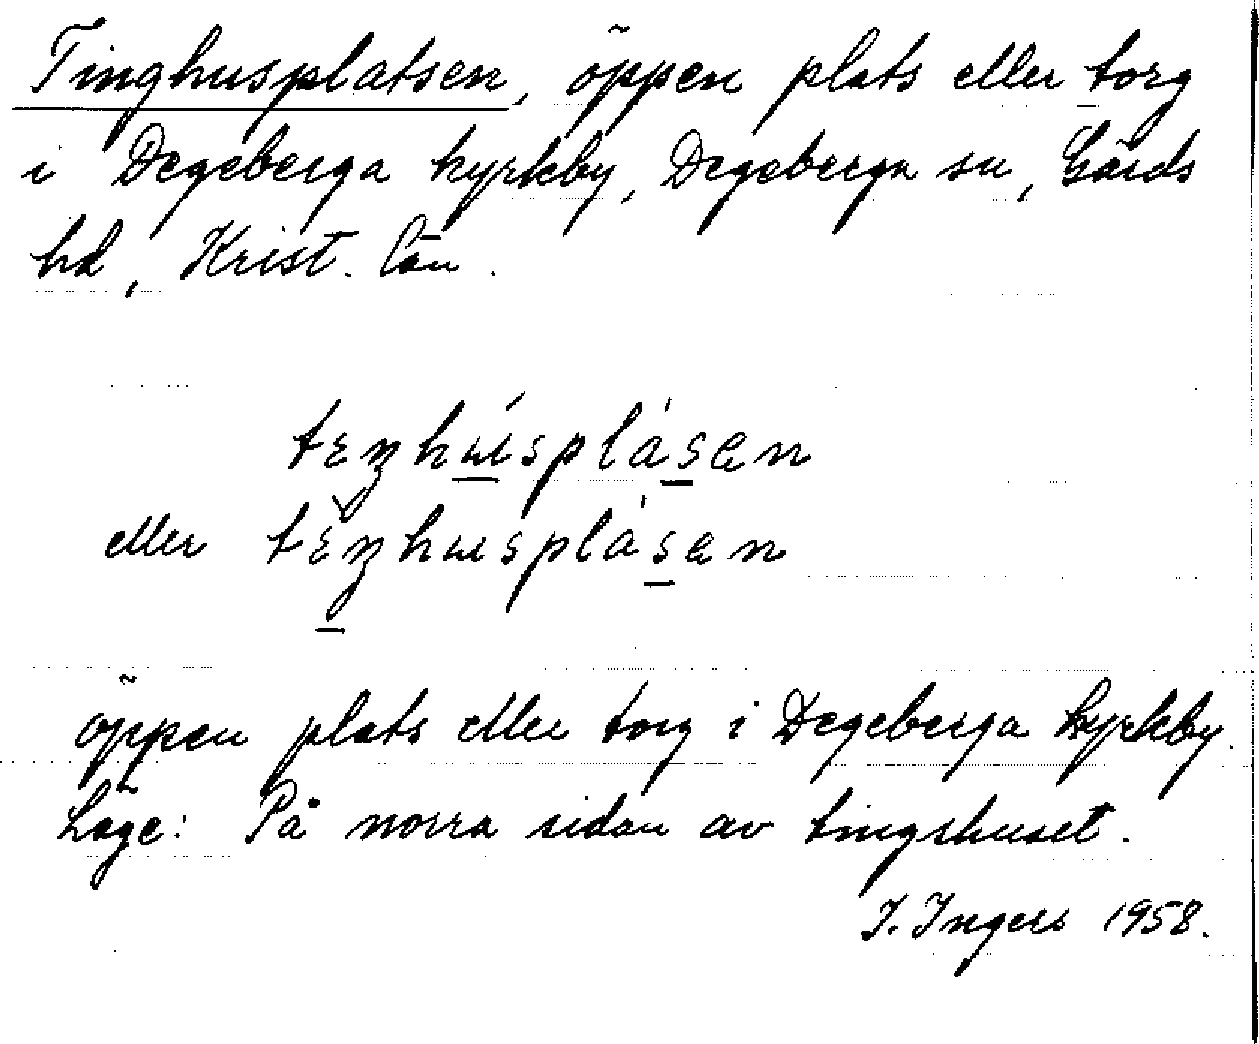 Tinghusplatsen, öppen plats eller torg
i Degeberga kyrkby, Degeberga sn, Gärds
hd, Krist. län.
eller
öppen plats eller torg i Degeberga kyrkby.
Läge: På norra sidan av tingshuset.
I. Ingers 1958.